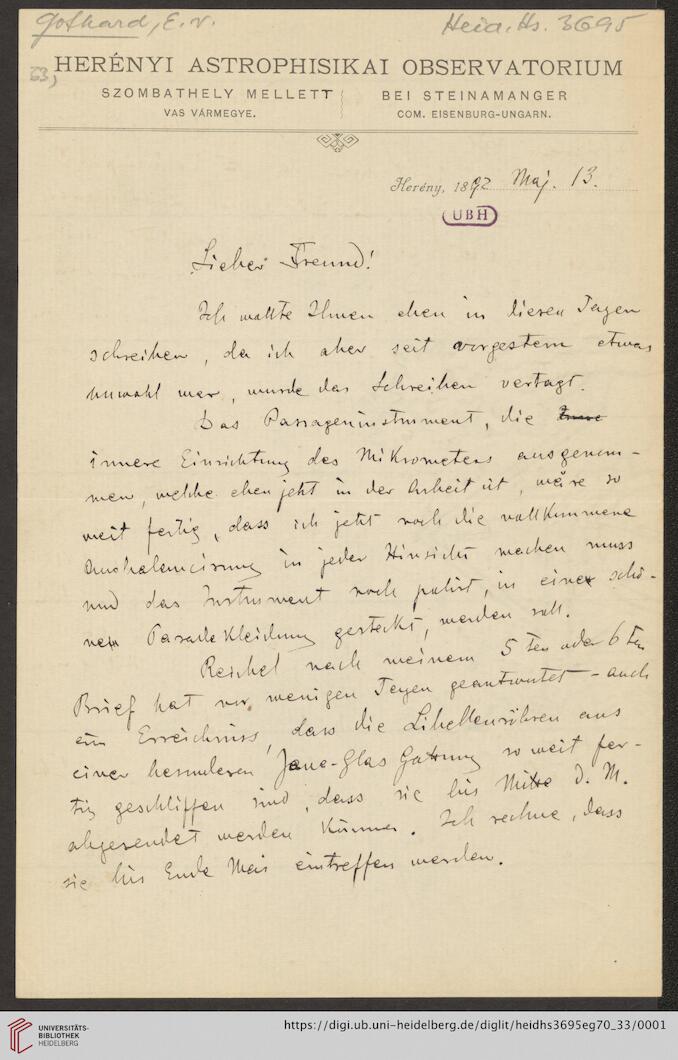 Gothard, E. v.
Heid. Hs. 3695
33)
HERÉNYI ASTROPHISIKAI OBSERVATORIUM
SZOMBATHELY MELLETT
BEI STEINAMANGER
VAS VÁRMEGYE.
COM. EISENBURG-UNGARN.
Herény, 1892 Maj. 13.
UBH
Lieber Freund!
Ich wollte Ihnen eben in diesen Tagen
schreiben, da ich aber seit vorgestern etwas
unwohl war, wurde das Schreiben vertagt.
Das Passageninstrument, die
innere Einrichtung des Mikrometers ausgenom-
men, welche eben jetzt in der Arbeit ist, wäre so
weit fertig, dass ich jetzt noch die vollkommene
Ausbalancirung in jeder Hinsicht machen muss
und das Instrument noch polirt, in eine schö-
nen Parade Kleidung gesteckt, werden soll.
Reichel nach meinem 5ten oder 6ten
Brief hat vor wenigen Tagen geantwortet - auch
ein Erreichniss, dass die Libellenröhren aus
einer besonderen Jena-Glas Gattung so weit fer-
tig geschliffen sind, dass sie bis Mitte d. M.
abgesendet werden können. Ich rechne, dass
sie bis Ende Mai eintreffen werden.
UNIVERSITÄTS-
BIBLIOTHEK
HEIDELBERG
https://digi.ub.uni-heidelberg.de/diglit/heidhs3695eg70_33/0001